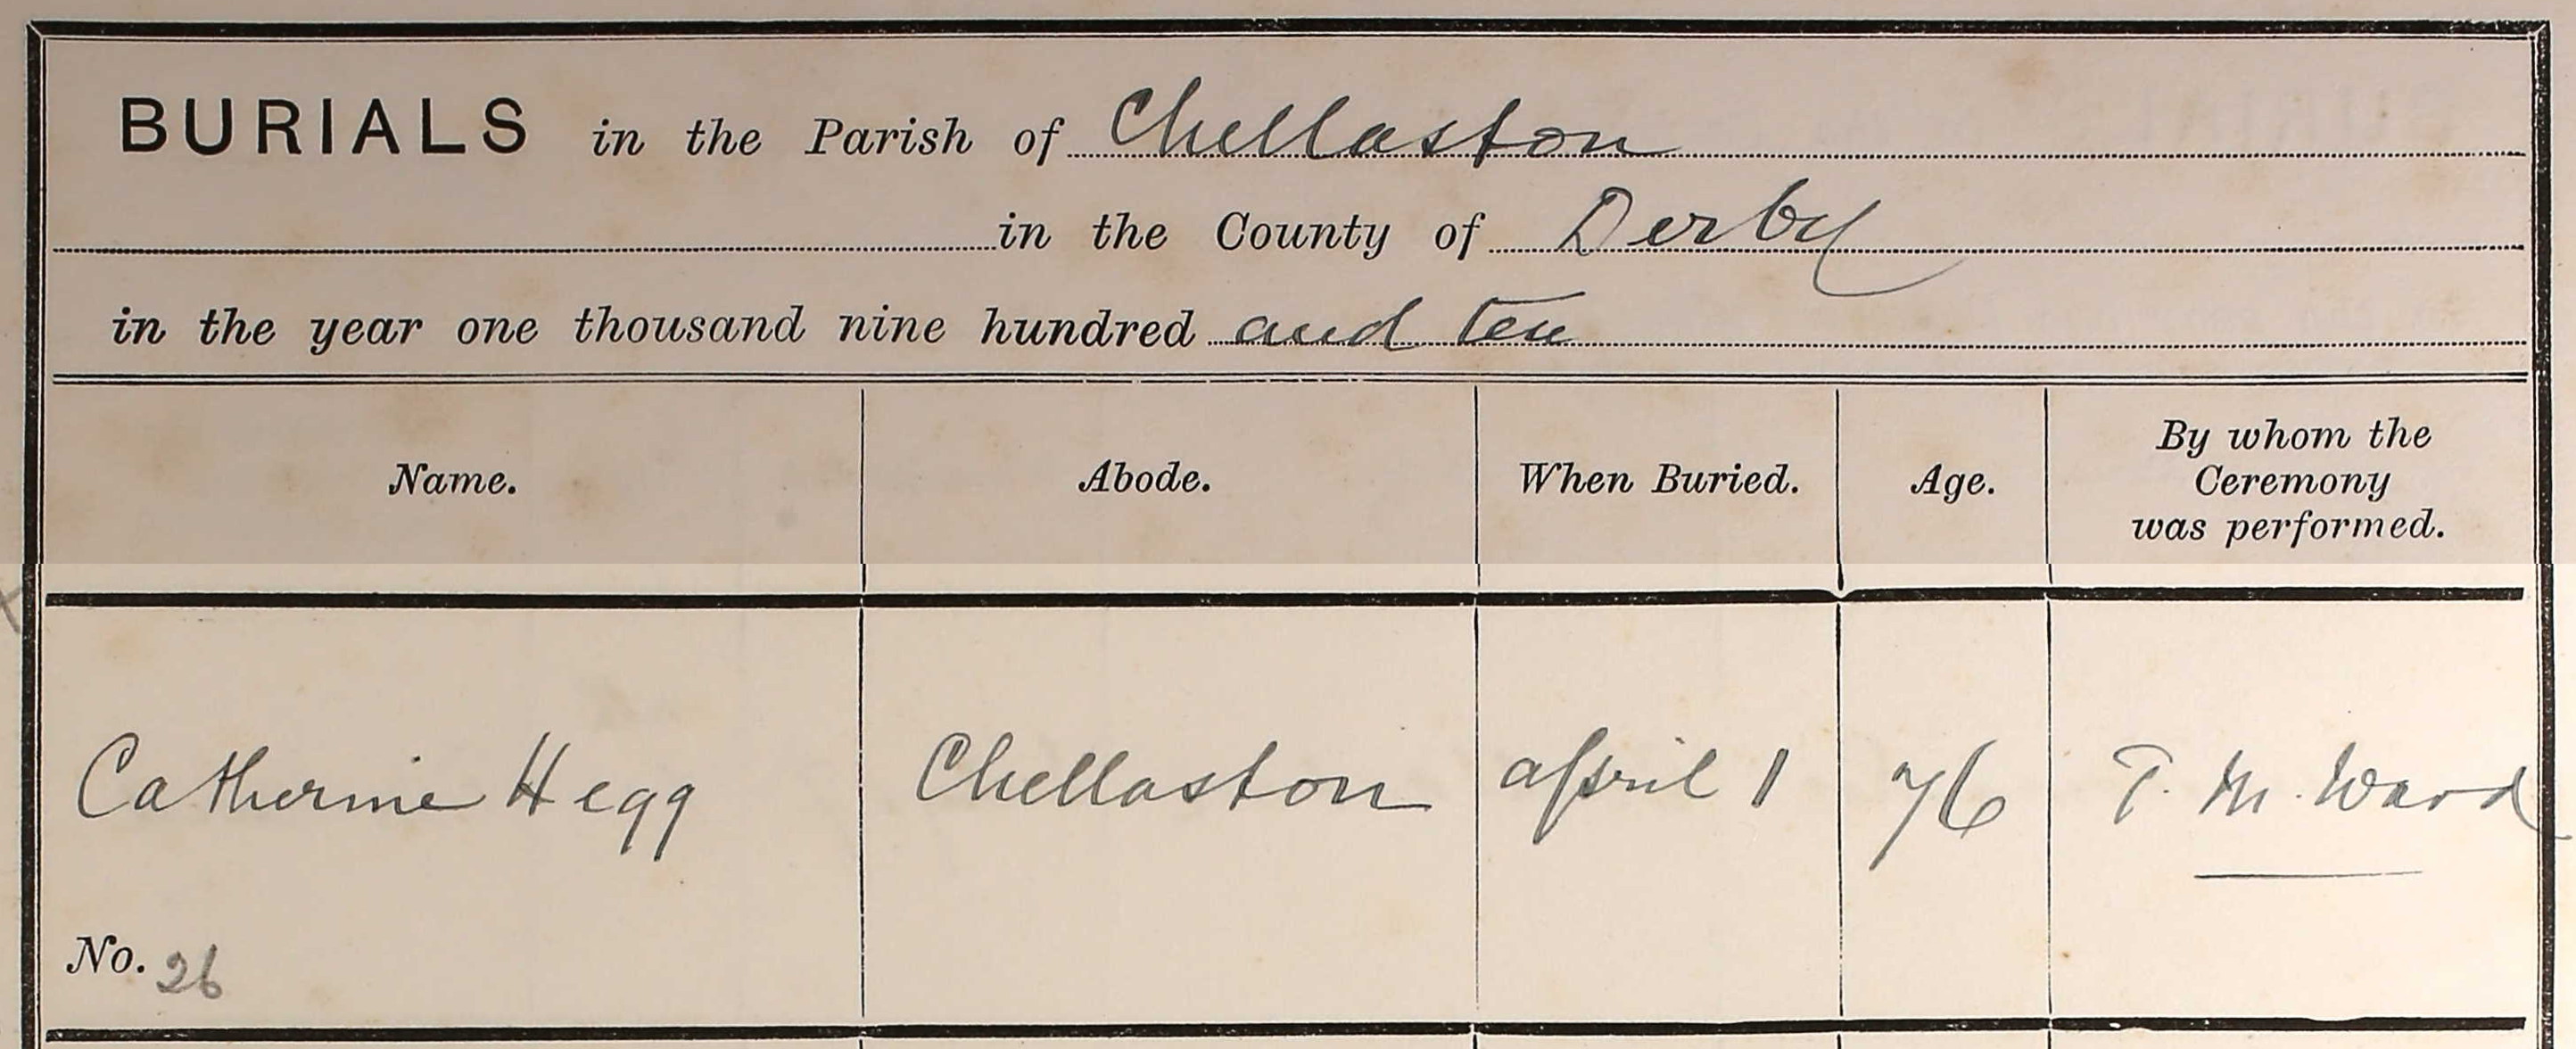 BURIALS in the Parish of Chellaston
in the County of Derby
in the year one thousand nine hundred and ten
Name. Abode. When Buried. Age. By whom the
Ceremony
was performed.
Catherine Hegg Chellaston april 1 76 T. M. Ward
No. 26